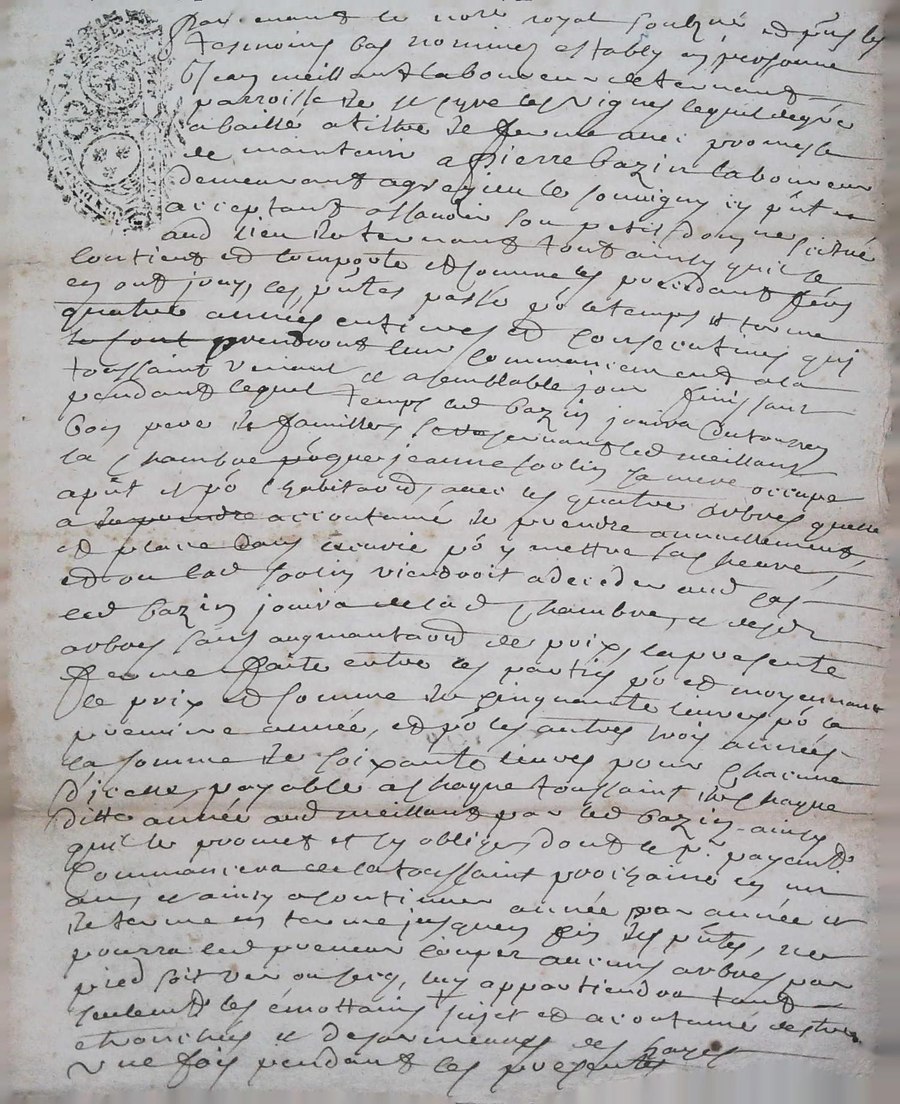 Par devant le nore royal soubzné et pns les
tesmoins bas nommez estably en personne
Jean meillant laboureur de ternant
parroisse de st cyre les vignes lequel de gré
a baillé a tiltre de ferme avec promesse
de maintenir a pierre bazin laboureur
demeurant a le souvigny cy pnt et
acceptant assavoir son petit domene situé
aud lieu de ternant tout ainsy quil se
contient et comporte et comme les preced fers
en ont jouy, ces pntes passé po le temps et terme
quatre années entieres et consecutives qui
prendront leur commencement a la
toussaint venant et a semblable jour finissant
pendant lequel temps led bazin jouira du tout en
bon pere de famille, led meillant
la chambre que jeanne foulin sa mere occupe
a pnt et po l'habitaud, avec les quatre arbres quelle
a accoutumé de prendre annuellement,
et place dans écurie po y mettre sa chevre,
et ou lad foulin viendroit a deceder aud cas
led bazin jouira de lad chambre, et desd
arbres sans augmantaod de prix, la presente
ferme faite entre les partis po et moyennant
le prix et somme de cinquante livres po la
premiere année, et po les autres trois années
la somme de soixante livres pour chacune
d'icelles, payable a chaque toussaint de chaque
ditte année aud meillant par led bazin ainsy
quil le promet et sy oblige, dont le pr payent
commancera de la toussaint prochaine en un
an, et ainsy a continuer année par année et
de terme en terme jusques fin des pntes, ne
pourra led preneur couper aucuns arbres par
pied soit ver ou secq, luy appartiendra tant
seulemt les émottains sujet et accoutumé destre
etronchés et des des hayes
une fois pendant les presentes